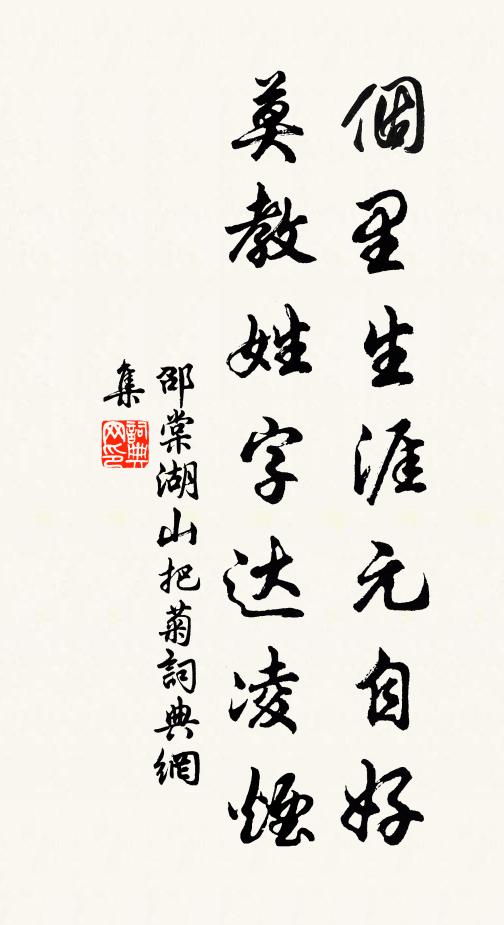 個里生涯元自好
莫教姓字达凌煙
邵棠湖山把菊詞典網
集
詞典
网印